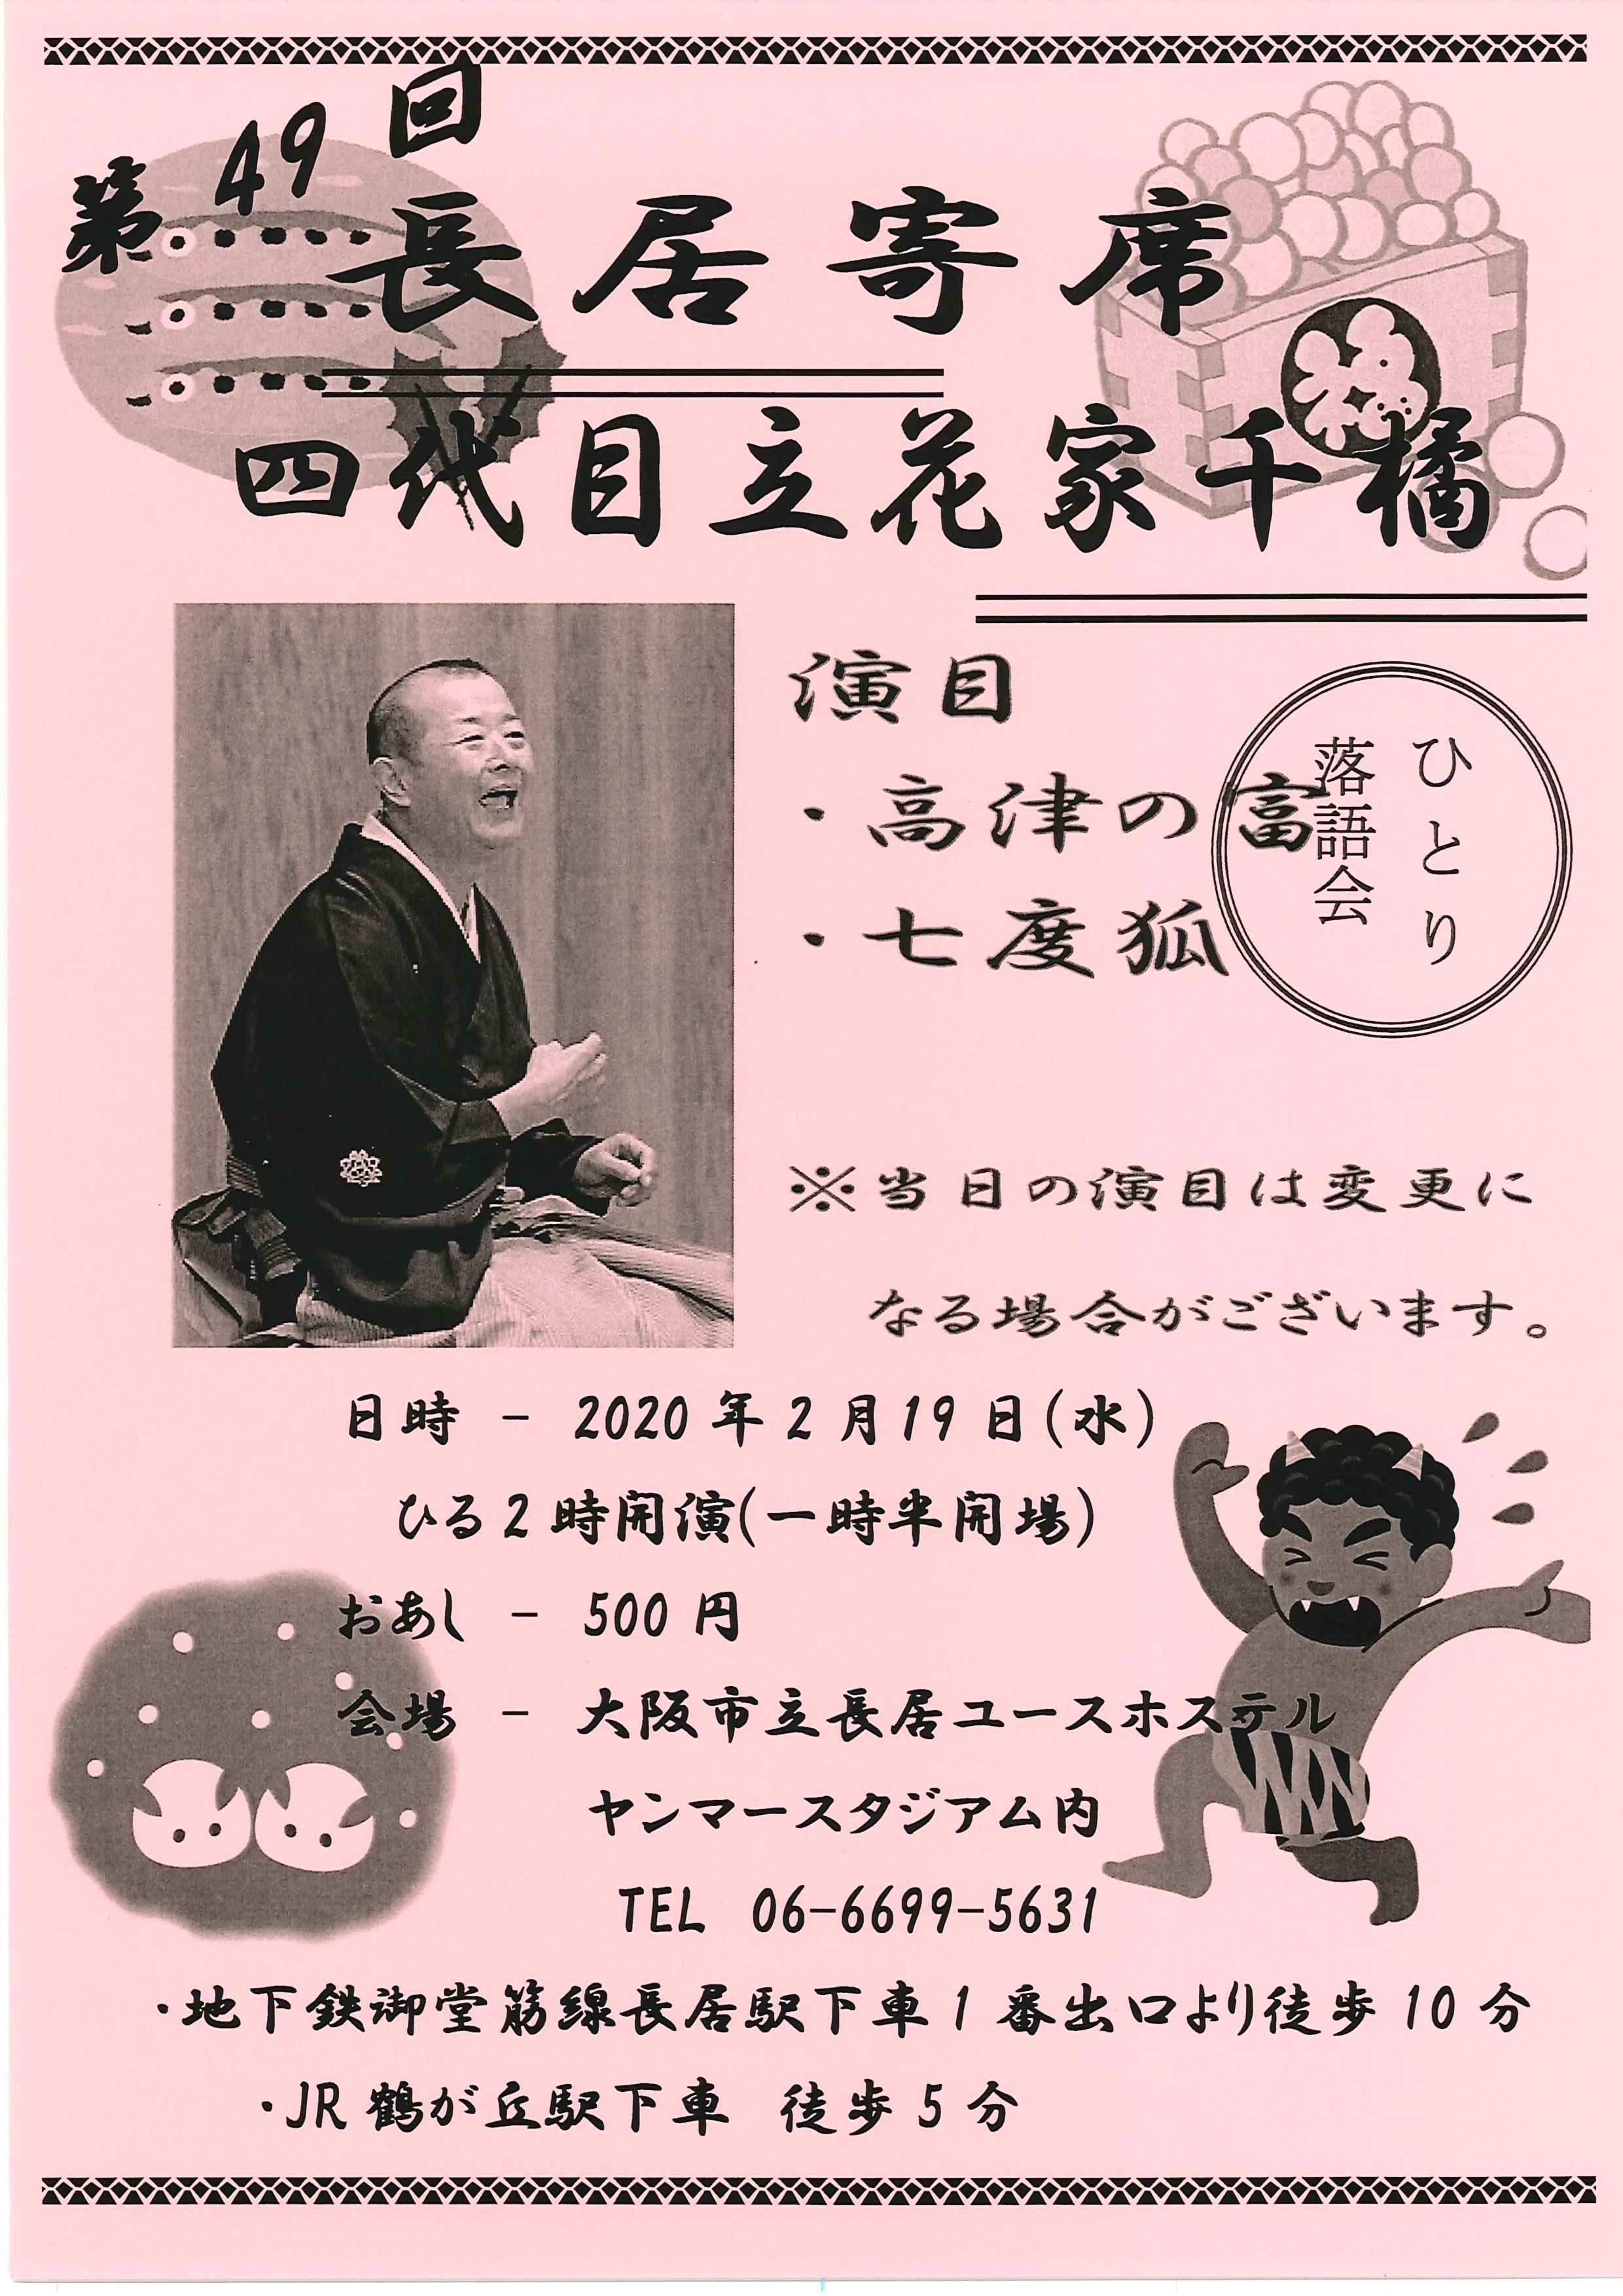 第49回
長居寄席
四代目立花家千橘
演目
・高津の富
・七度狐
ひとり
落語会
※当日の演目は変更に
なる場合がございます。
日時 － 2020年2月19日(水)
ひる2時開演(一時半開場)
おあし － 500円
会場 － 大阪市立長居ユースホステル
ヤンマースタジアム内
TEL 06-6699-5631
・地下鉄御堂筋線長居駅下車1番出口より徒歩10分
・JR鶴が丘駅下車 徒歩5分